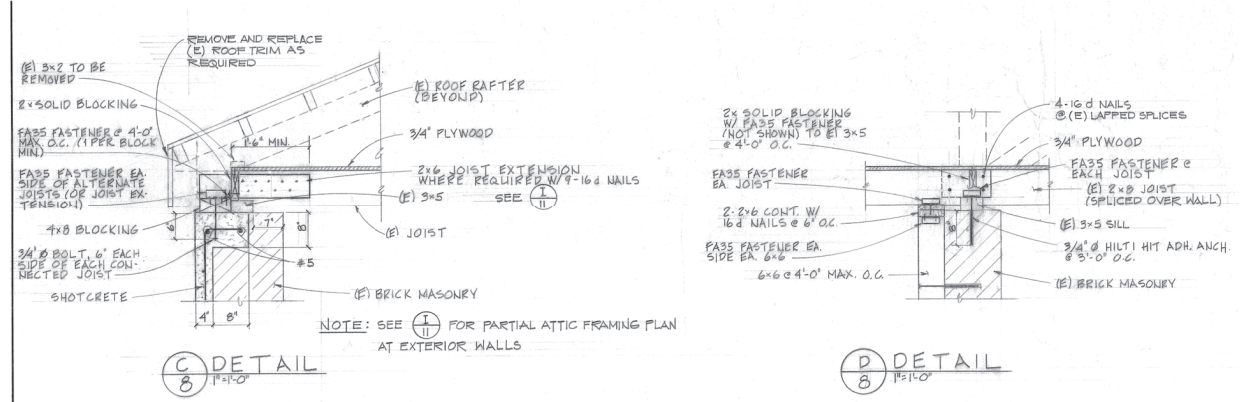 REMOVE AND REPLACE
(E) ROOF TRIM AS
REQUIRED
(E) 3×2 TO BE
REMOVED
2× SOLID BLOCKING
FA35 FASTENER @ 4'-0"
MAX. O.C. (1 PER BLOCK
MIN.)
FA35 FASTENER EA.
SIDE OF ALTERNATE
JOISTS (OR JOIST EX-
TENSION)
4×8 BLOCKING
3/4" Ø BOLT, 6" EACH
SIDE OF EACH CON-
NECTED JOIST
SHOTCRETE
(E) ROOF RAFTER
(BEYOND)
1'-6" MIN.
3/4" PLYWOOD
2×6 JOIST EXTENSION
WHERE REQUIRED W/ 9-16d NAILS
SEE I
11
(E) 3×5
(E) JOIST
6"
7"
8"
#5
(E) BRICK MASONRY
4"
8"
NOTE: SEE I FOR PARTIAL ATTIC FRAMING PLAN
11
AT EXTERIOR WALLS
C DETAIL
8 1"=1'-0"
2× SOLID BLOCKING
W/ FA35 FASTENER
(NOT SHOWN) TO (E) 3×5
@ 4'-0" O.C.
FA35 FASTENER
EA. JOIST
2-2×6 CONT. W/
16d NAILS @ 6" O.C.
FA35 FASTENER EA.
SIDE EA. 6×6
6×6 @ 4'-0" MAX. O.C.
4-16d NAILS
@ (E) LAPPED SPLICES
3/4" PLYWOOD
FA35 FASTENER @
EACH JOIST
(E) 2×8 JOIST
(SPLICED OVER WALL)
(E) 3×5 SILL
3/4" Ø HILTI HIT ADH. ANCH.
@ 3'-0" O.C.
(E) BRICK MASONRY
D DETAIL
8 1"=1'-0"